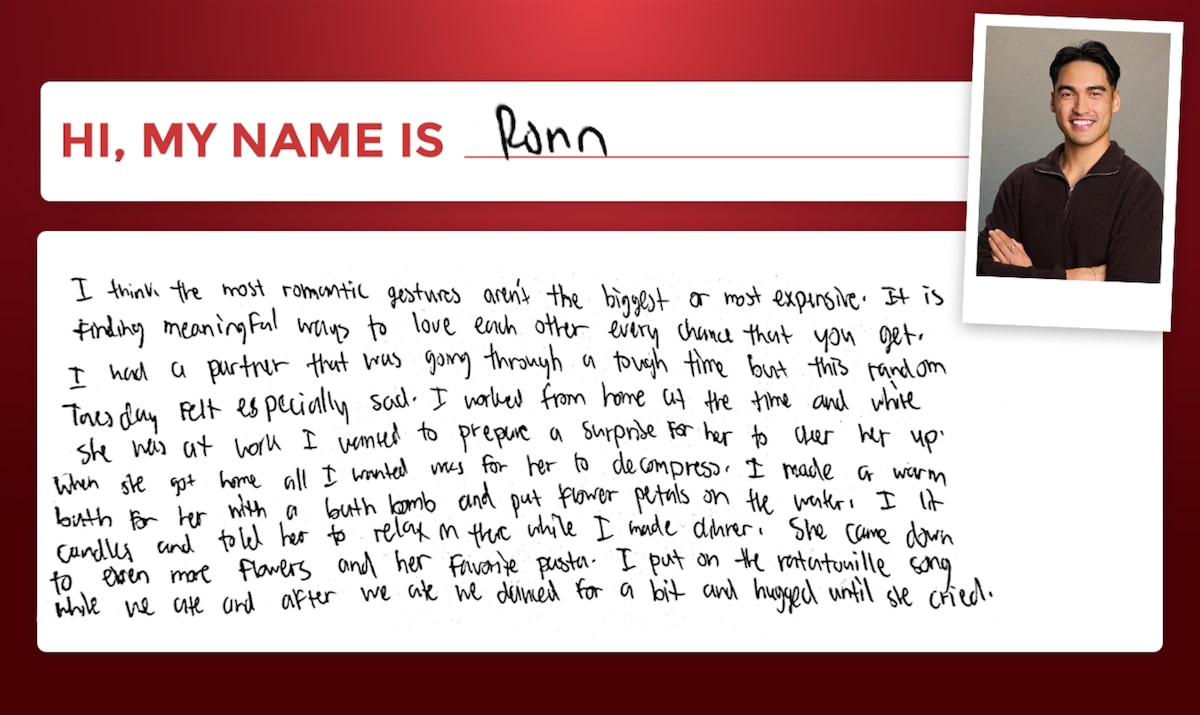 HI, MY NAME IS Ronn
I think the most romantic gestures aren't the biggest or most expensive. It is
finding meaningful ways to love each other every chance that you get.
I had a partner that was going through a tough time but this random
Tuesday felt especially sad. I worked from home at the time and while
she was at work I wanted to prepare a surprise for her to cheer her up.
When she got home all I wanted was for her to decompress. I made a warm
bath for her with a bath bomb and put flower petals on the water. I lit
candles and told her to relax in there while I made dinner. She came down
to even more flowers and her favorite pasta. I put on the ratatouille song
while we ate and after we ate we danced for a bit and hugged until she cried.